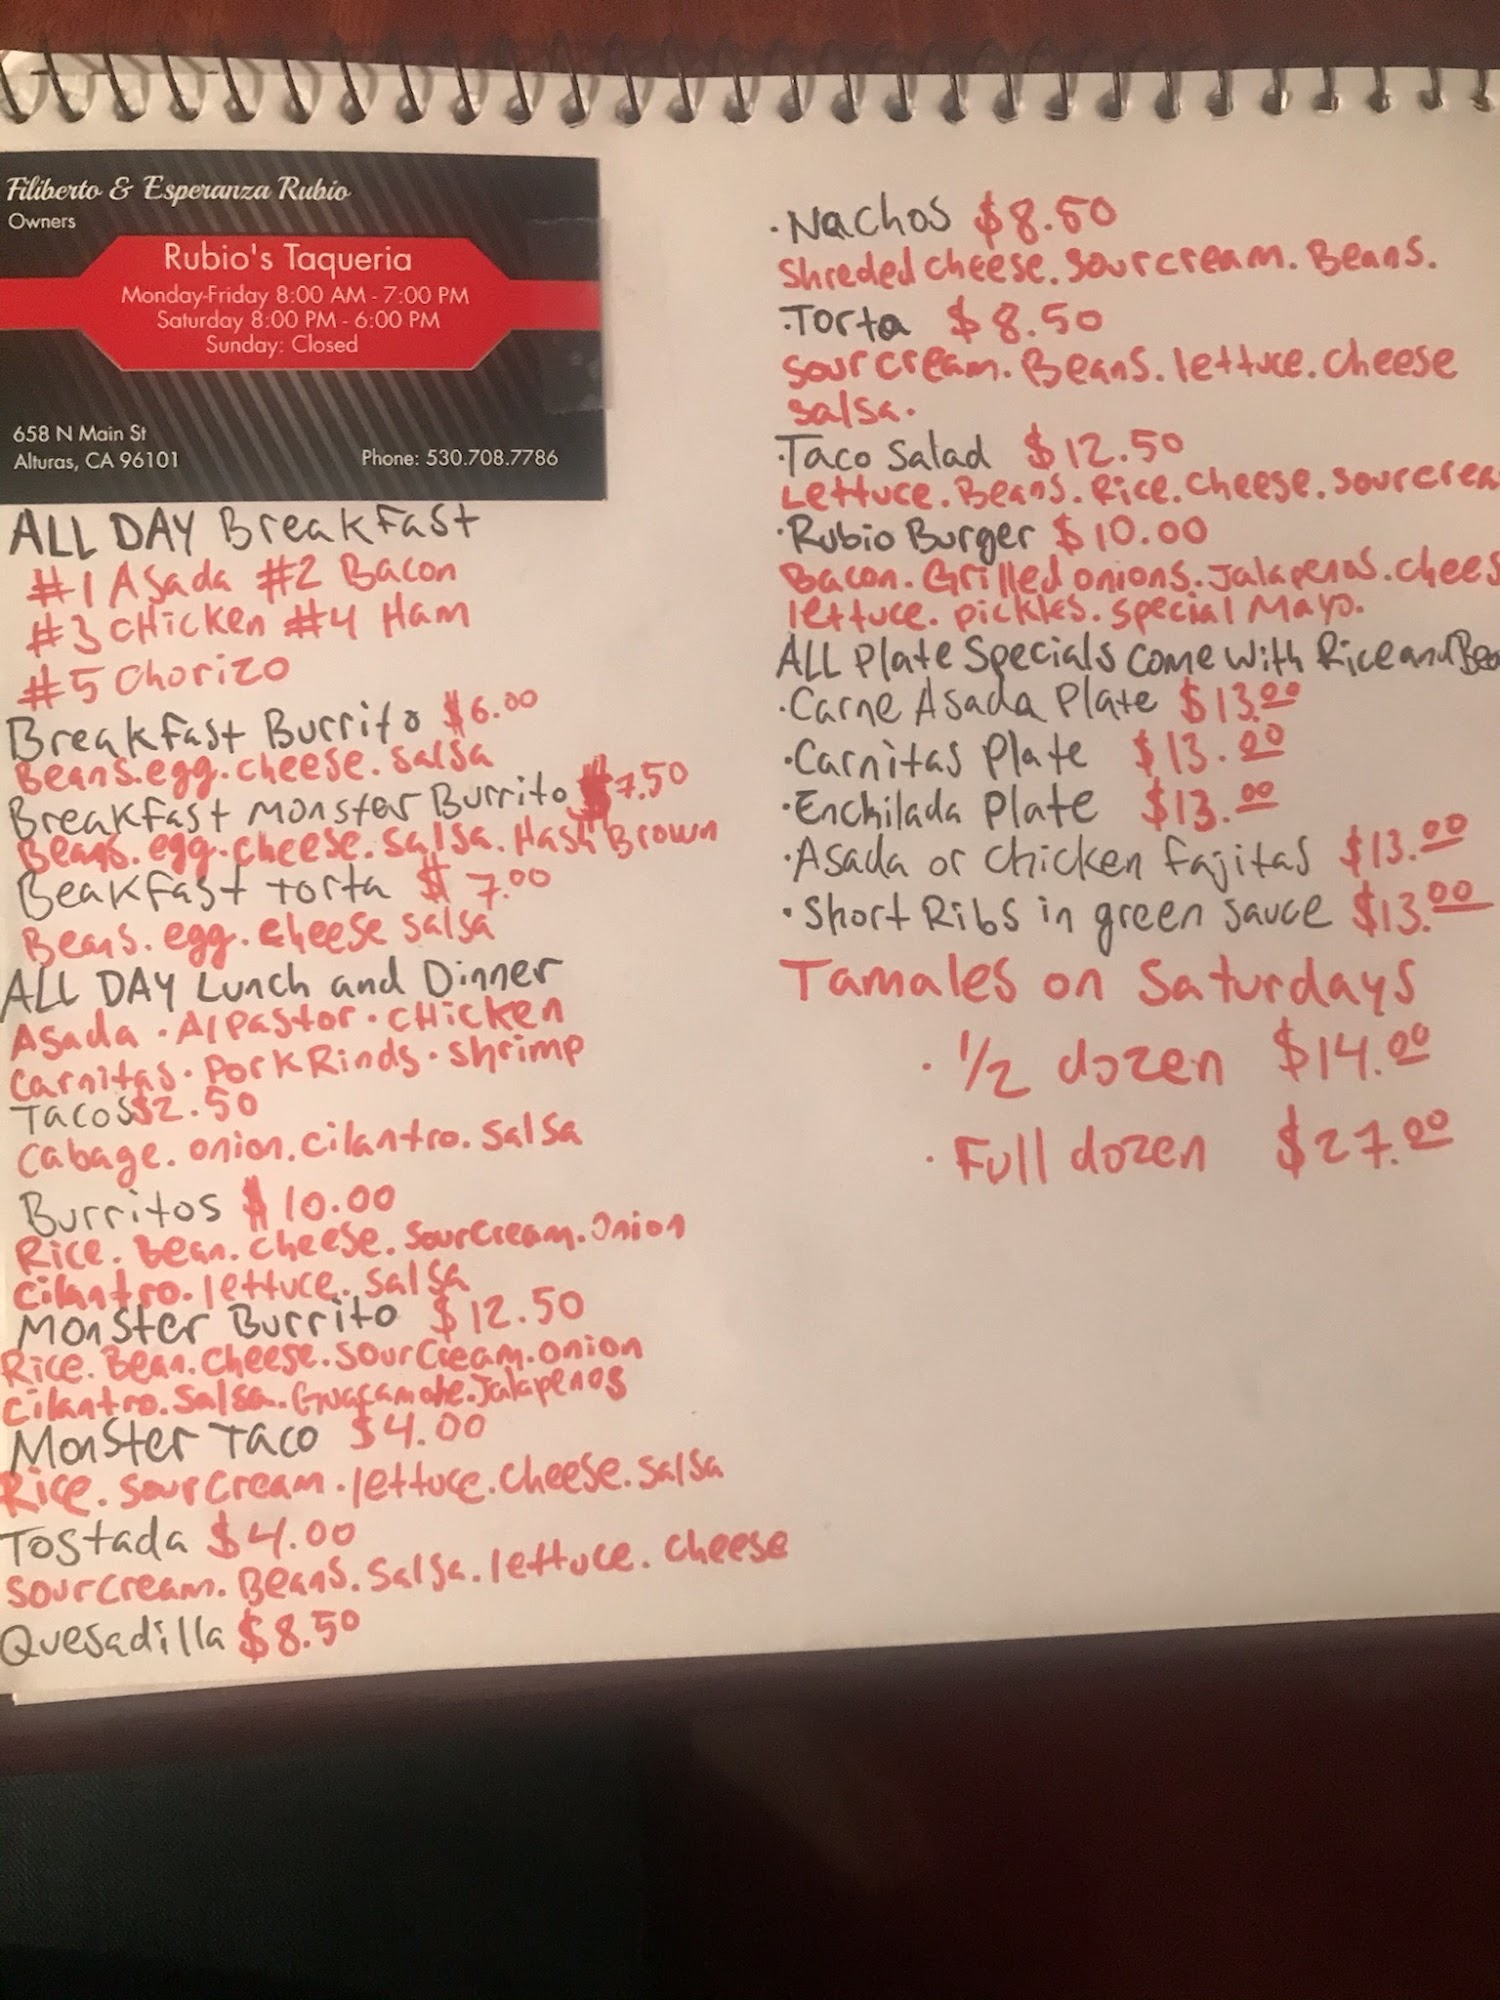 Filiberto & Esperanza Rubio
Owners
Rubio's Taqueria
Monday-Friday 8:00 AM - 7:00 PM
Saturday 8:00 PM - 6:00 PM
Sunday: Closed
658 N Main St
Alturas, CA 96101
Phone: 530.708.7786
ALL DAY BreakFast
#1 Asada #2 Bacon
#3 CHicken #4 Ham
#5 Chorizo
BreakFast Burrito $6.00
Beans.egg.cheese.salsa
BreakFast Monster Burrito $7.50
Beans.egg.cheese.salsa.Hash Brown
BeakFast Torta $7.00
Beans.egg.cheese salsa
ALL DAY Lunch and Dinner
Asada • Al Pastor • CHicken
Carnitas • Pork Rinds • shrimp
Tacos $2.50
Cabage.onion.cilantro.salsa
Burritos $10.00
Rice.Bean.cheese.sourcream.onion
cilantro.lettuce.salsa
Monster Burrito $12.50
Rice.Bean.cheese.sourcream.onion
cilantro.salsa.Guacamole.Jalapenos
Monster Taco $4.00
Rice.sourcream.lettuce.cheese.salsa
Tostada $4.00
sourcream.Beans.salsa.lettuce.cheese
Quesadilla $8.50
• Nachos $8.50
Shreded cheese.sourcream.Beans.
• Torta $8.50
sourcream.Beans.lettuce.cheese
salsa.
• Taco Salad $12.50
Lettuce.Beans.Rice.cheese.sourcrea
• Rubio Burger $10.00
Bacon.Grilled onions.Jalapenos.chees
lettuce.pickles.special Mayo.
ALL Plate Specials come with Rice and Bea
• Carne Asada Plate $13.00
• Carnitas Plate $13.00
• Enchilada Plate $13.00
• Asada or chicken fajitas $13.00
• Short Ribs in green sauce $13.00
Tamales on Saturdays
• 1/2 dozen $14.00
• Full dozen $27.00